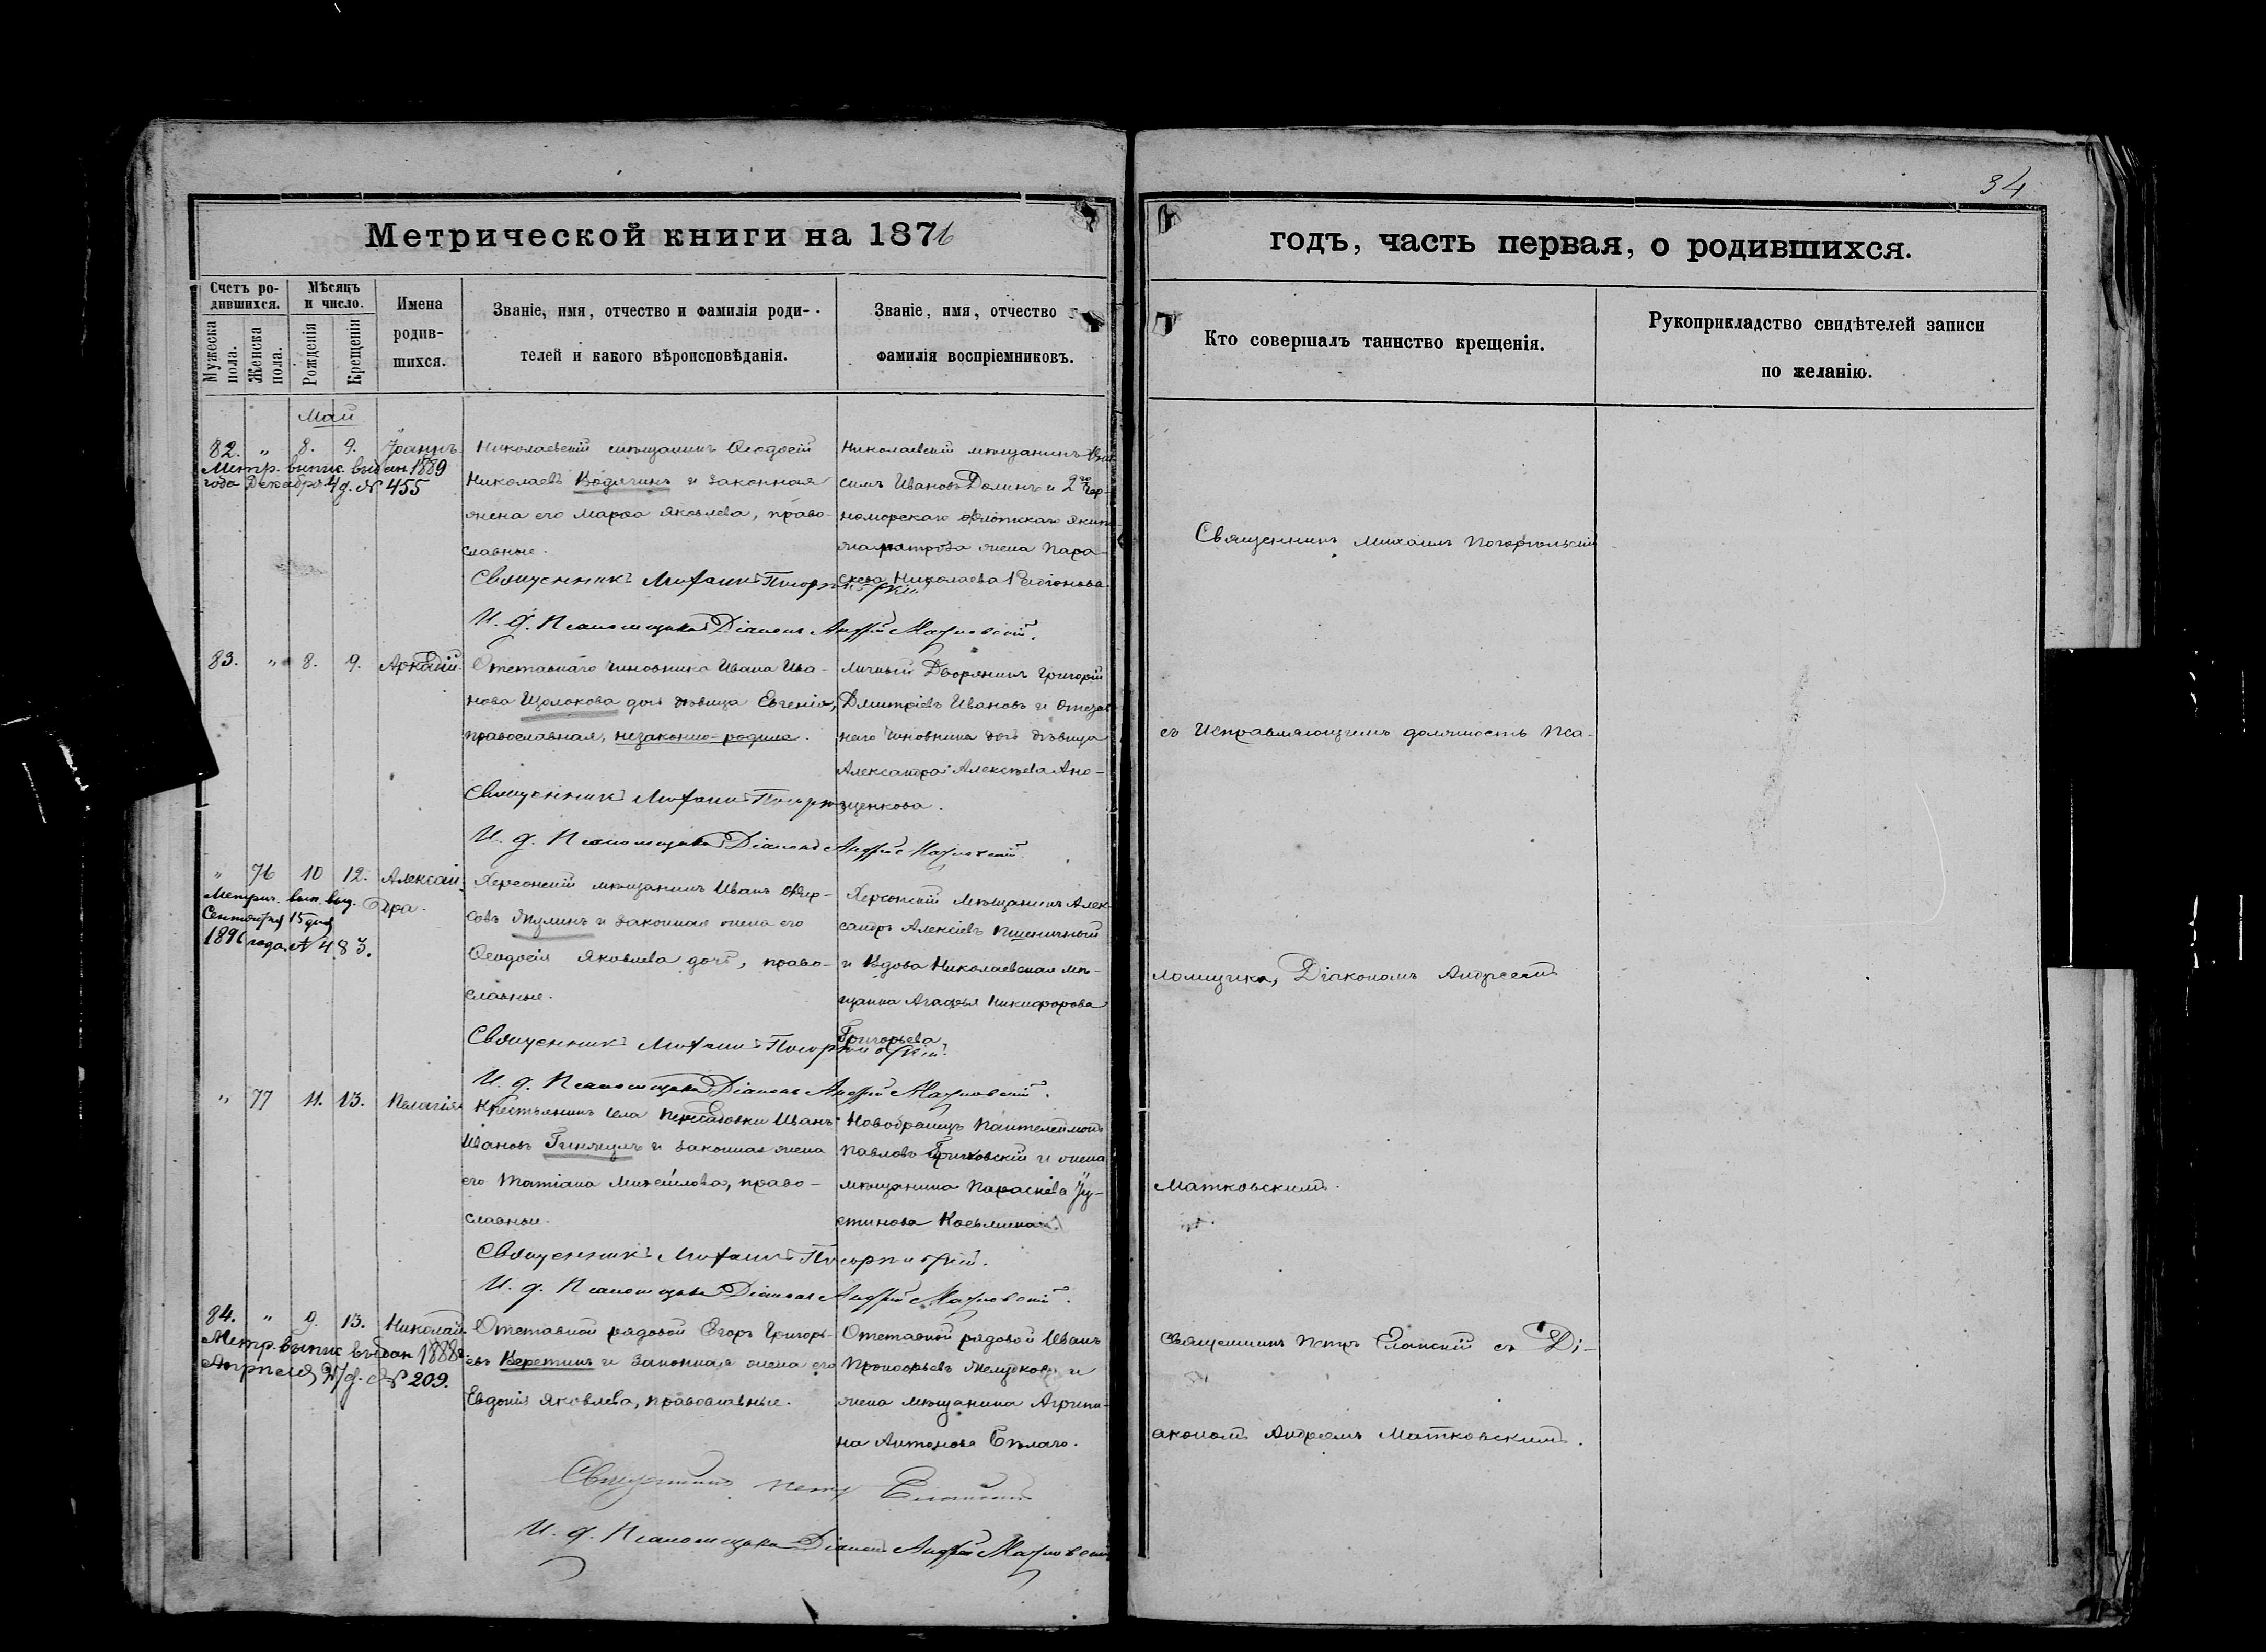 34
Метрической книги на 1876
годъ, часть первая, о родившихся.
Счетъ ро-
дившихся.
Мужеска пола.
Женска пола.
Мѣсяцъ
и число.
Рожденія
Крещенія
Имена
родив-
шихся.
Званіе, имя, отчество и фамилія роди-
телей и какого вѣроисповѣданія.
Званіе, имя, отчество
фамилія воспріемниковъ.
Кто совершалъ таинство крещенія.
Рукоприкладство свидѣтелей записи
по желанію.
Май
82. " 8. 9. Іоаннъ.
Метр. выпис. выдан 1889
года Декабря 4 д. № 455
Николаевскій мѣщанинъ Ѳеодосій
Николаевъ и законная
жена его Марѳа Яковлева, право-
славные.
Священникъ Михаилъ
И. д. Псаломщика Діаконъ Андрей Матковскій.
Николаевскій мѣщанинъ
симъ Ивановъ Долинъ и 2го Чер-
номорскаго флотскаго экип
матроза жена Пара-
скева Николаева
83. " 8. 9. Аркадій.
Отставнаго чиновника Ивана Ива-
нова Щолокова дочь дѣвица Евгенія,
православная, незаконно-родила.
Священникъ Михаилъ
И. д. Псаломщика Діаконъ Андрей Матковскій.
Личный Дворянинъ Григорій
Дмитріевъ Ивановъ и Отстав
наго чиновника дочь дѣвица
Александра Алексѣева Ано-
щенкова.
" 76 10 12. Алексан-
дра.
Метрич. вып. выд.
Сентября 15 дня
1896 года № 483.
Херсонскій мѣщанинъ Иванъ
совъ Якулинъ и законная жена его
Ѳеодосія Яковлева дочь, право-
славные.
Священникъ Михаилъ
И. д. Псаломщика Діаконъ Андрей Матковскій.
Херсонскій Мѣщанинъ Алек-
сандръ Алексѣевъ Пшеничный
и Вдова Николаевская мѣ-
щанка Агафья Никифорова
Григорьева
" 77 11. 13. Пелагія.
Крестьянинъ села Пересадовки Иванъ
Ивановъ и законная жена
его Татіана Михайлова, право-
славные.
Священникъ Михаилъ
И. д. Псаломщика Діаконъ Андрей Матковскій.
Новобранецъ Пантелеймонъ
Павловъ и жена
мѣщанина Параскева Іу-
стинова Косьмина
84. " 9. 13. Николай.
Метр. выпис выдан 1888
Апрпеля 27 д. № 209.
Отставной рядовой Егоръ Григорь-
евъ Веретинъ и законная жена его
Евдокія Яковлева, православные.
Священникъ Петръ Еланскій
И. д. Псаломщика Діаконъ Андрей Матковскій
Отставной рядовой Иванъ
Прокофьевъ Желудковъ и
жена мѣщанина Агрипи-
на Антонова Бѣлаго.
Священникъ Михаилъ
съ Исправляющимъ должность Пса-
ломщика, Діакономъ Андреемъ
Матковскимъ.
Священникъ Петръ Еланскій съ Ді-
акономъ Андреемъ Матковскимъ.